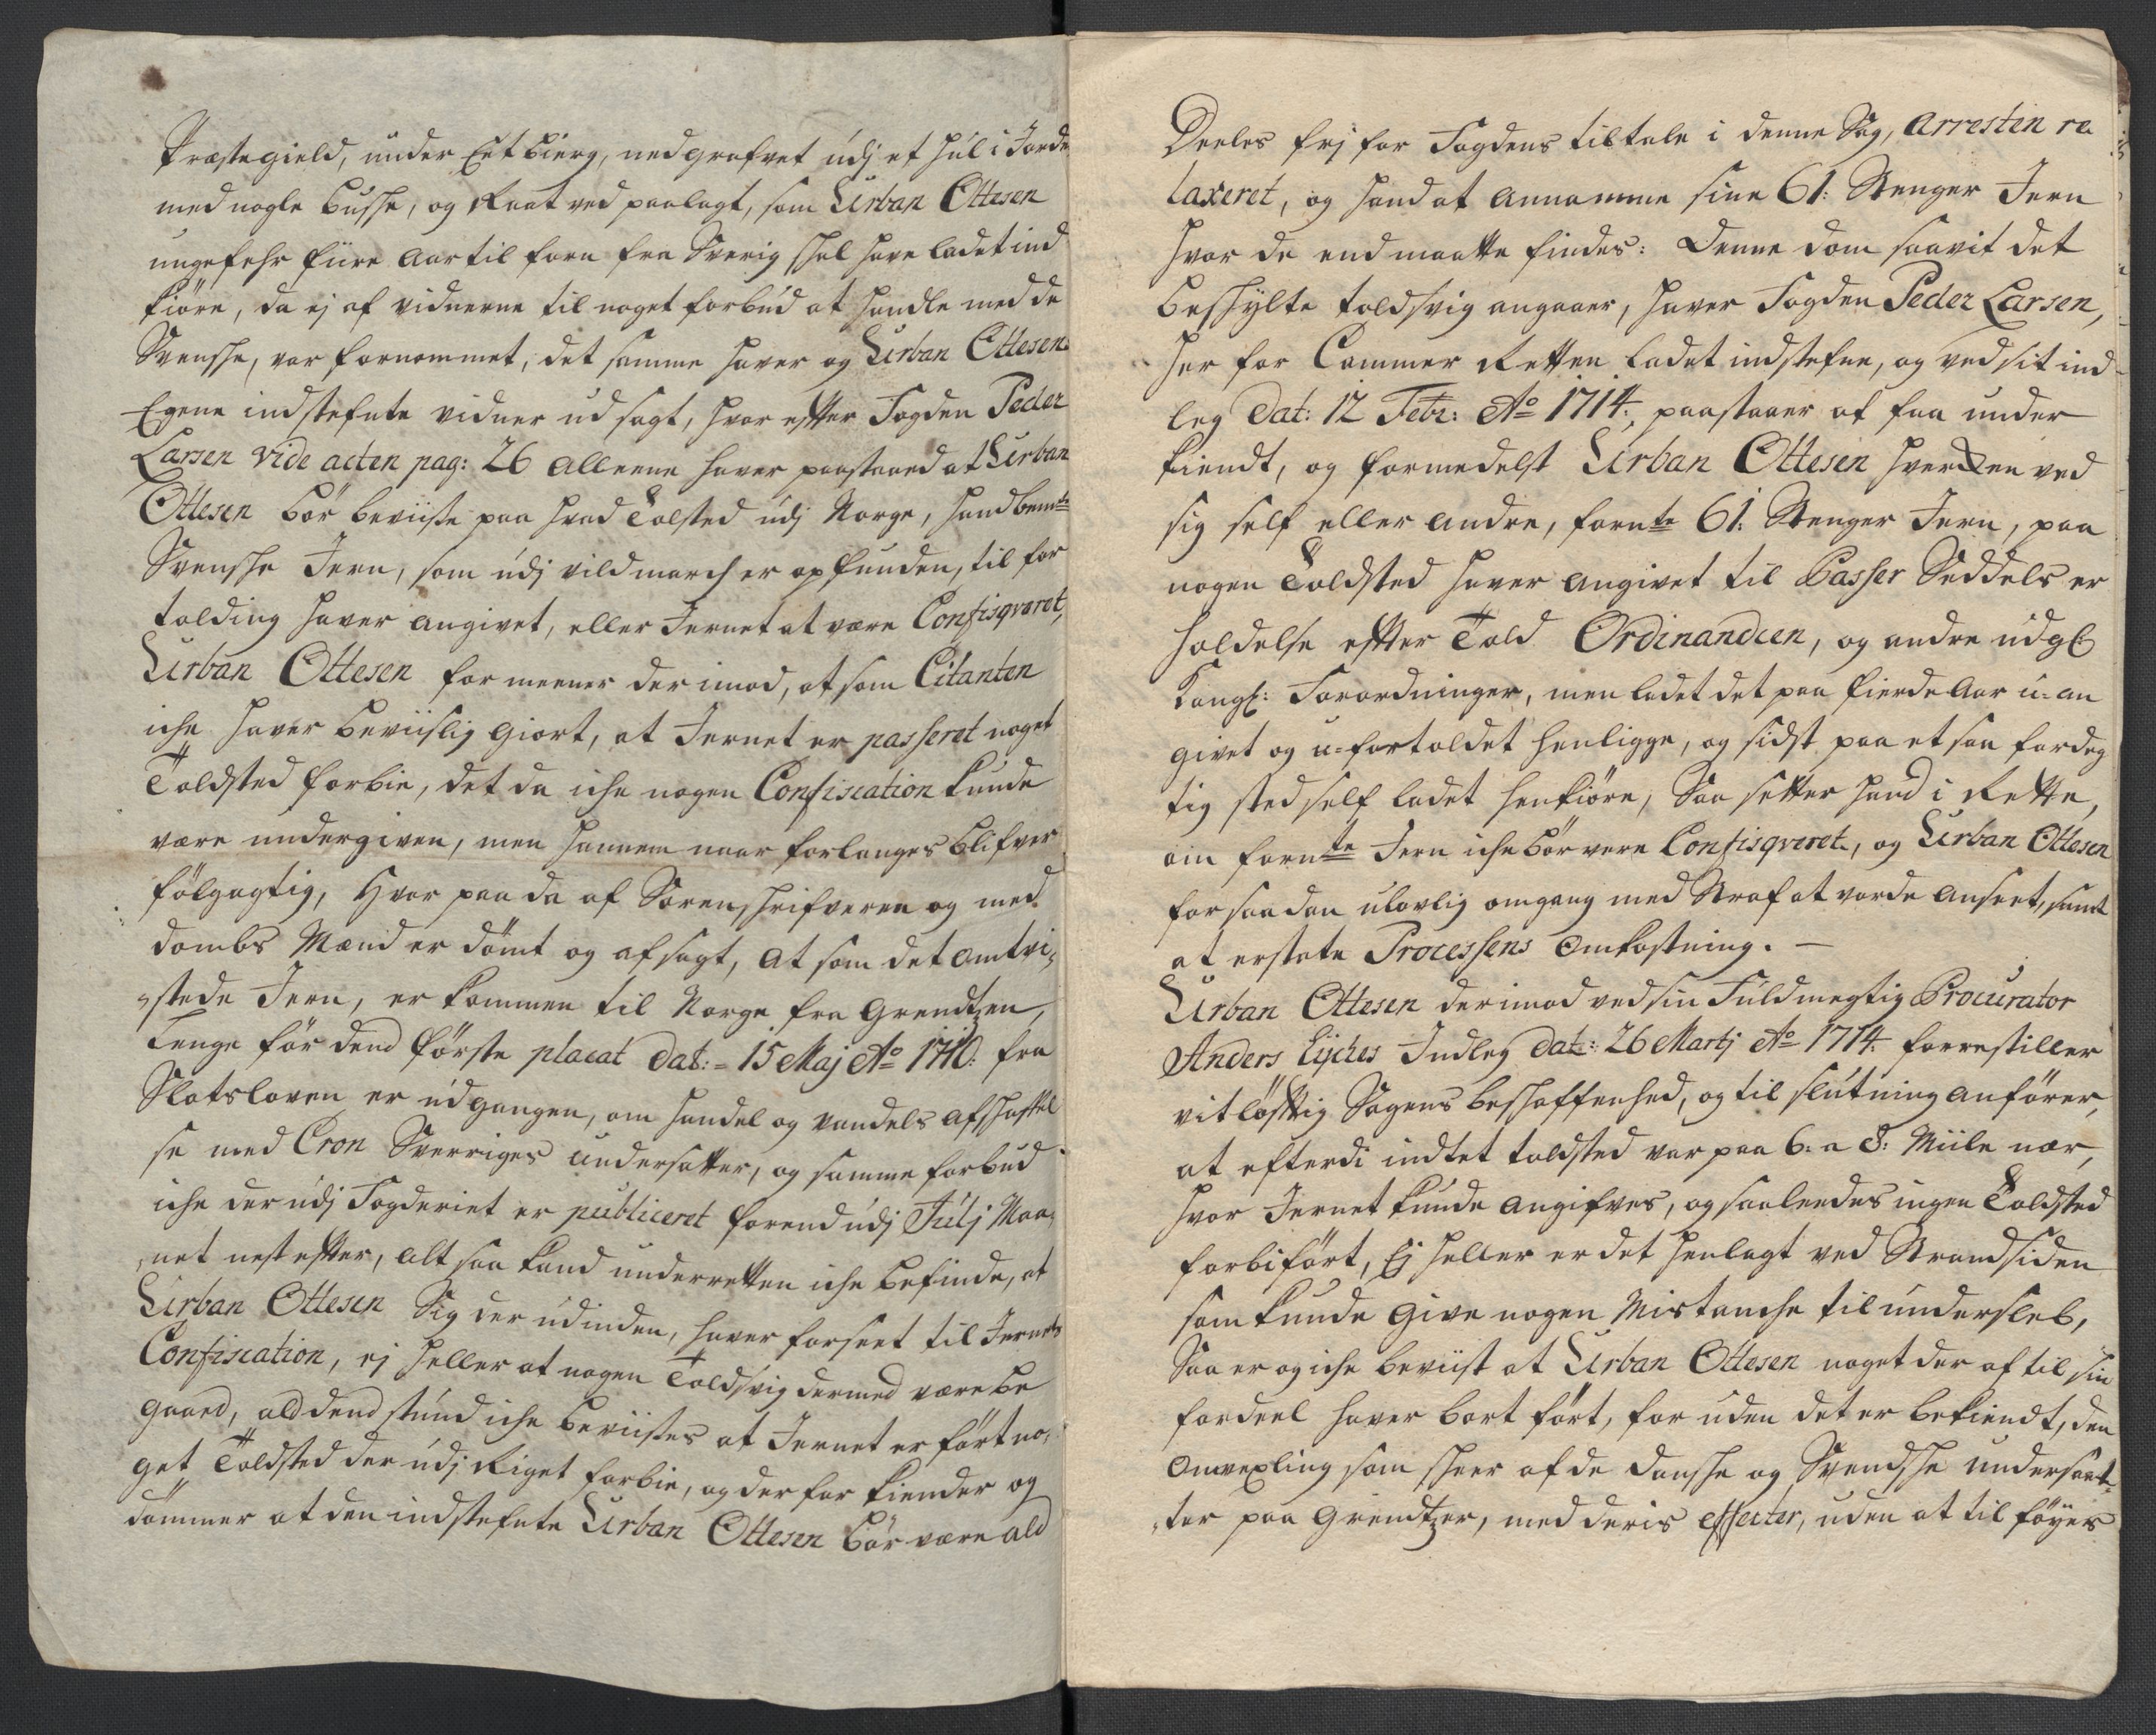 Præstegield, under Eet bierg, nedgrafvet udj et hul i Jorde
med nogle busche, og Raat ved paalagt, som Urban Ottesen
ungefehr fiire Aar til forn fra Sverig skal have ladet ind
kiöre, da ej af vidnerne til noget forbud at handle med de
Svensche, var fornommet, det samme haver og Urban Ottesens
Egene indstefnte vidner ud sagt, hvor effter Fogden Peder
Larsen vide acten pag: 26 alleene haver paastaaed at Urban
Ottesen bör beviiße paa hvad Tolsted udj Norge, hand bemte
Svensche Jern, som udj vildmarch er opfunden, til for
tolding haver angivet, eller Jernet at være Confisqveret,
Urban Ottesen formeener der imod, at som Citanten
iche haver beviislig giort, at Jernet er passeret noget
Toldsted forbie, det da iche nogen Confiscation kunde
være undergiven, men hannem naar forlanges blifver
fölgagtig, Hvor paa da af Sorenschrifveren og med
dombs Mænd er dömt og afsagt, at som det omtvi,
,stede Jern, er kommen til Norge fra Grendtzen,
Lenge för dend förste placat dat: = 15 Maj Ao 1710: fra
Slotsloven er udgangen, om handel og vandels afschaffel
se med Cron Sverriges undersatter, og samme forbud
iche der udj Fogderiet er publiceret forend udj Julj Maa,
,net nest effter, alt saa kand underretten iche befinde, at
Urban Ottesen Sig der udinden, haver forseet til Jernets
Confiscation, ej heller at nogen Toldsvig dermed være be
gaaed, ald dend stund iche beviistes at Jernet er fört no,
get Toldsted der udj Riget forbie, og der for kiender og
dömmer at den indstefnte Urban Ottesen bör være ald
Deeles frj for Fogdens tiltale i denne Sag, Arresten re
laxeret, og hand at annamme sine 61: Stenger Jern
hvor de end maatte findes: Denne dom saavit det
beschylte toldsvig angaaer, haver Fogden Peder Larsen,
her for Cammer Retten ladet indstefne, og ved sit ind-
leg Dat: 12 Febr: Ao 1714, paastaaer at faa under
kiendt, og formedelst Urban Ottesen hverken ved
sig self eller andre, fornte 61: Stenger Jern, paa
nogen Toldsted haver angivet til Passer Seddels er
holdelse effter Told Ordinandcen, og andre udgl
Kongl: Forordninger, men ladet det paa fierde Aar u=an
givet og u=fortoldet henligge, og sidst paa et saa fordeg
tig sted self ladet henkiöre, Saa setter hand i Rette,
om fornte Jern iche bör vere Confisqveret, og Urban Ottesen
for saadan ulovlig omgang med Straf at vorde anseet, samt
at erstate Processens omkostning. —
Urban Ottesen derimod ved sin Fuldmegtig Procurator
Anders Lyches Indleg dat: 26 Martj Ao 1714. forrestiller
vitløfftig Sagens beschaffenhed, og til slutning anförer,
at efterdi indtet toldsted var paa 6: a 8: Miile nær,
hvor Jernet kunde angifves, og saaleedes ingen Toldsted
forbifört, Ej heller er det henlagt ved Strandsiden
som kunde give nogen Mistanche til undersleb,
Saa er og iche beviist at Urban Ottesen noget der af til sin
fordeel haver bort fört, for uden det er bekiendt, den
omvexling som scheer af de dansche og Svendsche undersaat-
,ter paa Grendtzer, med deris effecter, uden at til föyes